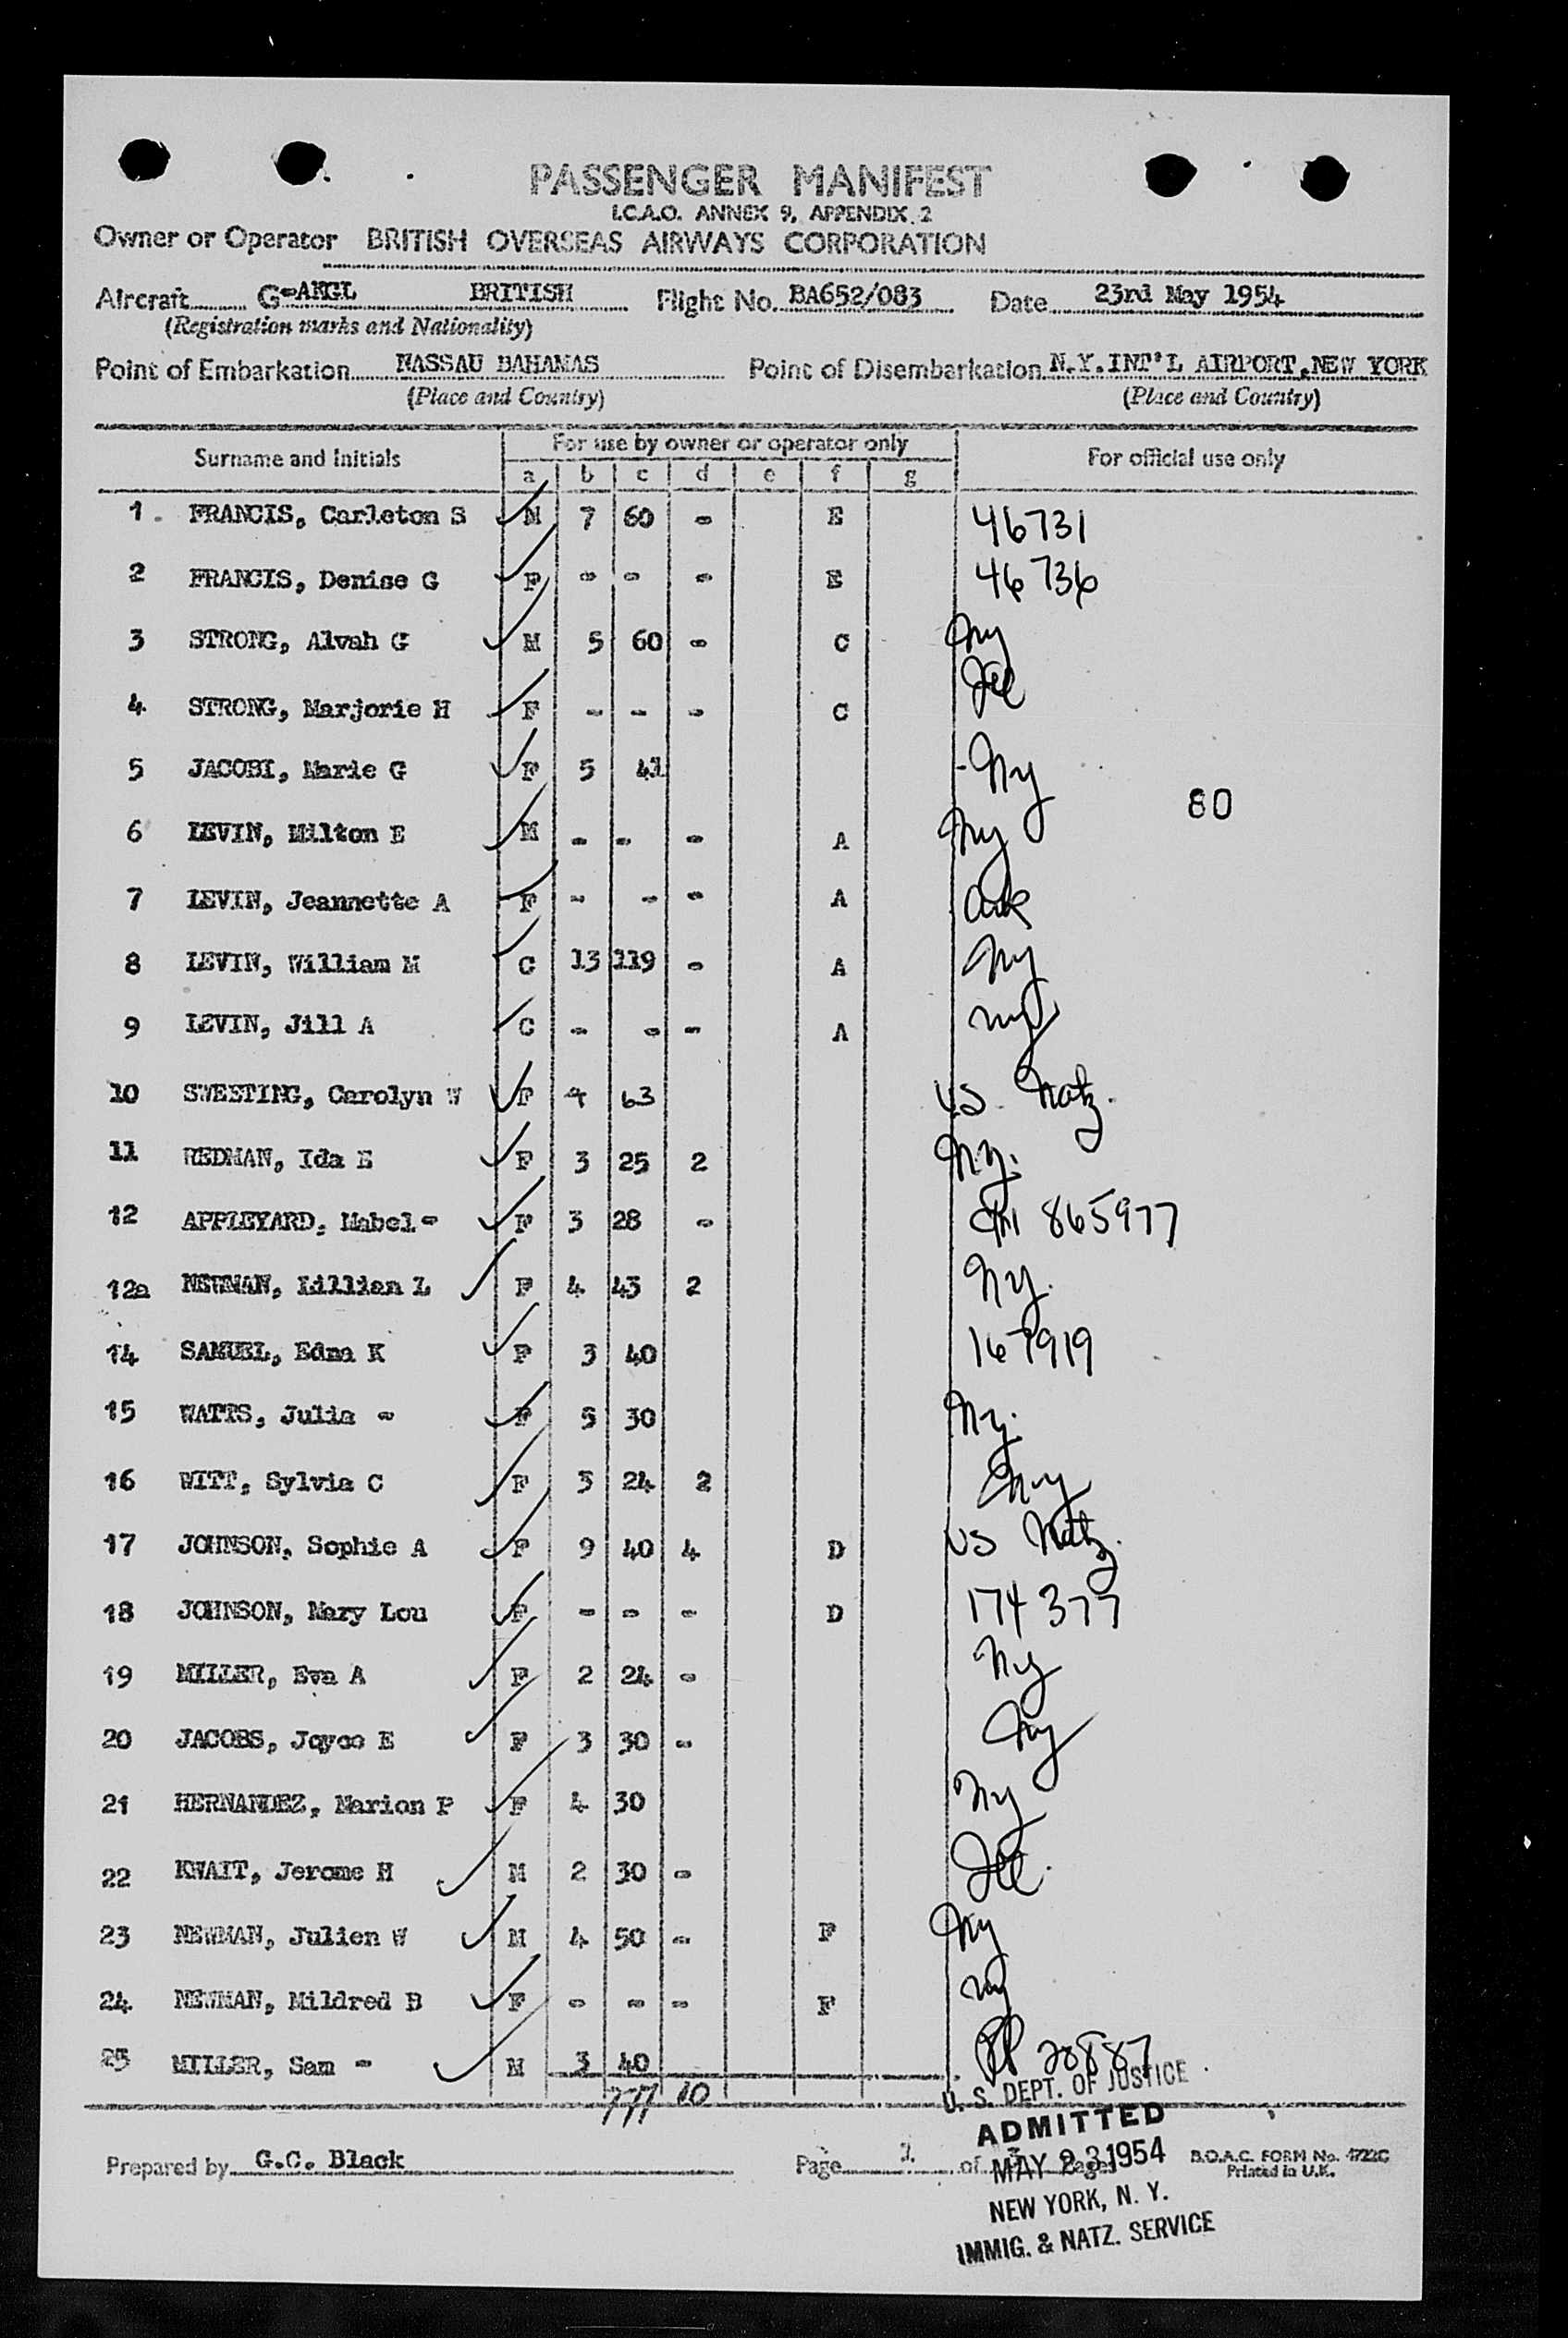 PASSENGER MANIFEST
I.C.A.O. ANNEX 9, APPENDIX 2
Owner or Operator BRITISH OVERSEAS AIRWAYS CORPORATION
Aircraft G-AKGL BRITISH Flight No. BA652/083 Date 23rd May 1954
(Registration marks and Nationality)
Point of Embarkation NASSAU BAHAMAS Point of Disembarkation N.Y.INT'L AIRPORT,NEW YORK
(Place and Country) (Place and Country)
Surname and Initials For use by owner or operator only For official use only
a b c d e f g
1. FRANCIS, Carleton S M 7 60 - E 46731
2 FRANCIS, Denise G F - - - E 46736
3 STRONG, Alvah G M 5 60 - C Ny
4 STRONG, Marjorie H F - - - C Ill
5 JACOBI, Marie G F 5 41 Ny
80
6 LEVIN, Milton E M - - - A Ny
7 LEVIN, Jeannette A F - - - A Ark
8 LEVIN, William M C 13 119 - A Ny
9 LEVIN, Jill A C - - - A Ny
10 SWEETING, Carolyn W F 4 63 US Natz.
11 REDMAN, Ida E F 3 25 2 N.y.
12 APPLEYARD, Mabel - F 3 28 - 865977
12a NEWMAN, Lillian L F 4 43 2 Ny.
14 SAMUEL, Edna K F 3 40 167919
15 WATTS, Julia - F 5 30 Ny.
16 WITT, Sylvia C F 3 24 2 Ny
17 JOHNSON, Sophie A F 9 40 4 D US Natz.
18 JOHNSON, Mary Lou F - - - D 174377
19 MILLER, Eva A F 2 24 - Ny
20 JACOBS, Joyce E F 3 30 - Ny
21 HERNANDEZ, Marion P F 4 30 Ny
22 KWAIT, Jerome H M 2 30 - Ill.
23 NEWMAN, Julien W M 4 50 - F Ny
24 NEWMAN, Mildred B F - - - F Ny
25 MILLER, Sam - M 3 40 PP 28887
777 10
U. S. DEPT. OF JUSTICE
ADMITTED
MAY 23 1954
NEW YORK, N. Y.
IMMIG. & NATZ. SERVICE
Prepared by G.C. Black Page 1 of 3 Pages B.O.A.C. FORM No. 1722C
Printed in U.K.